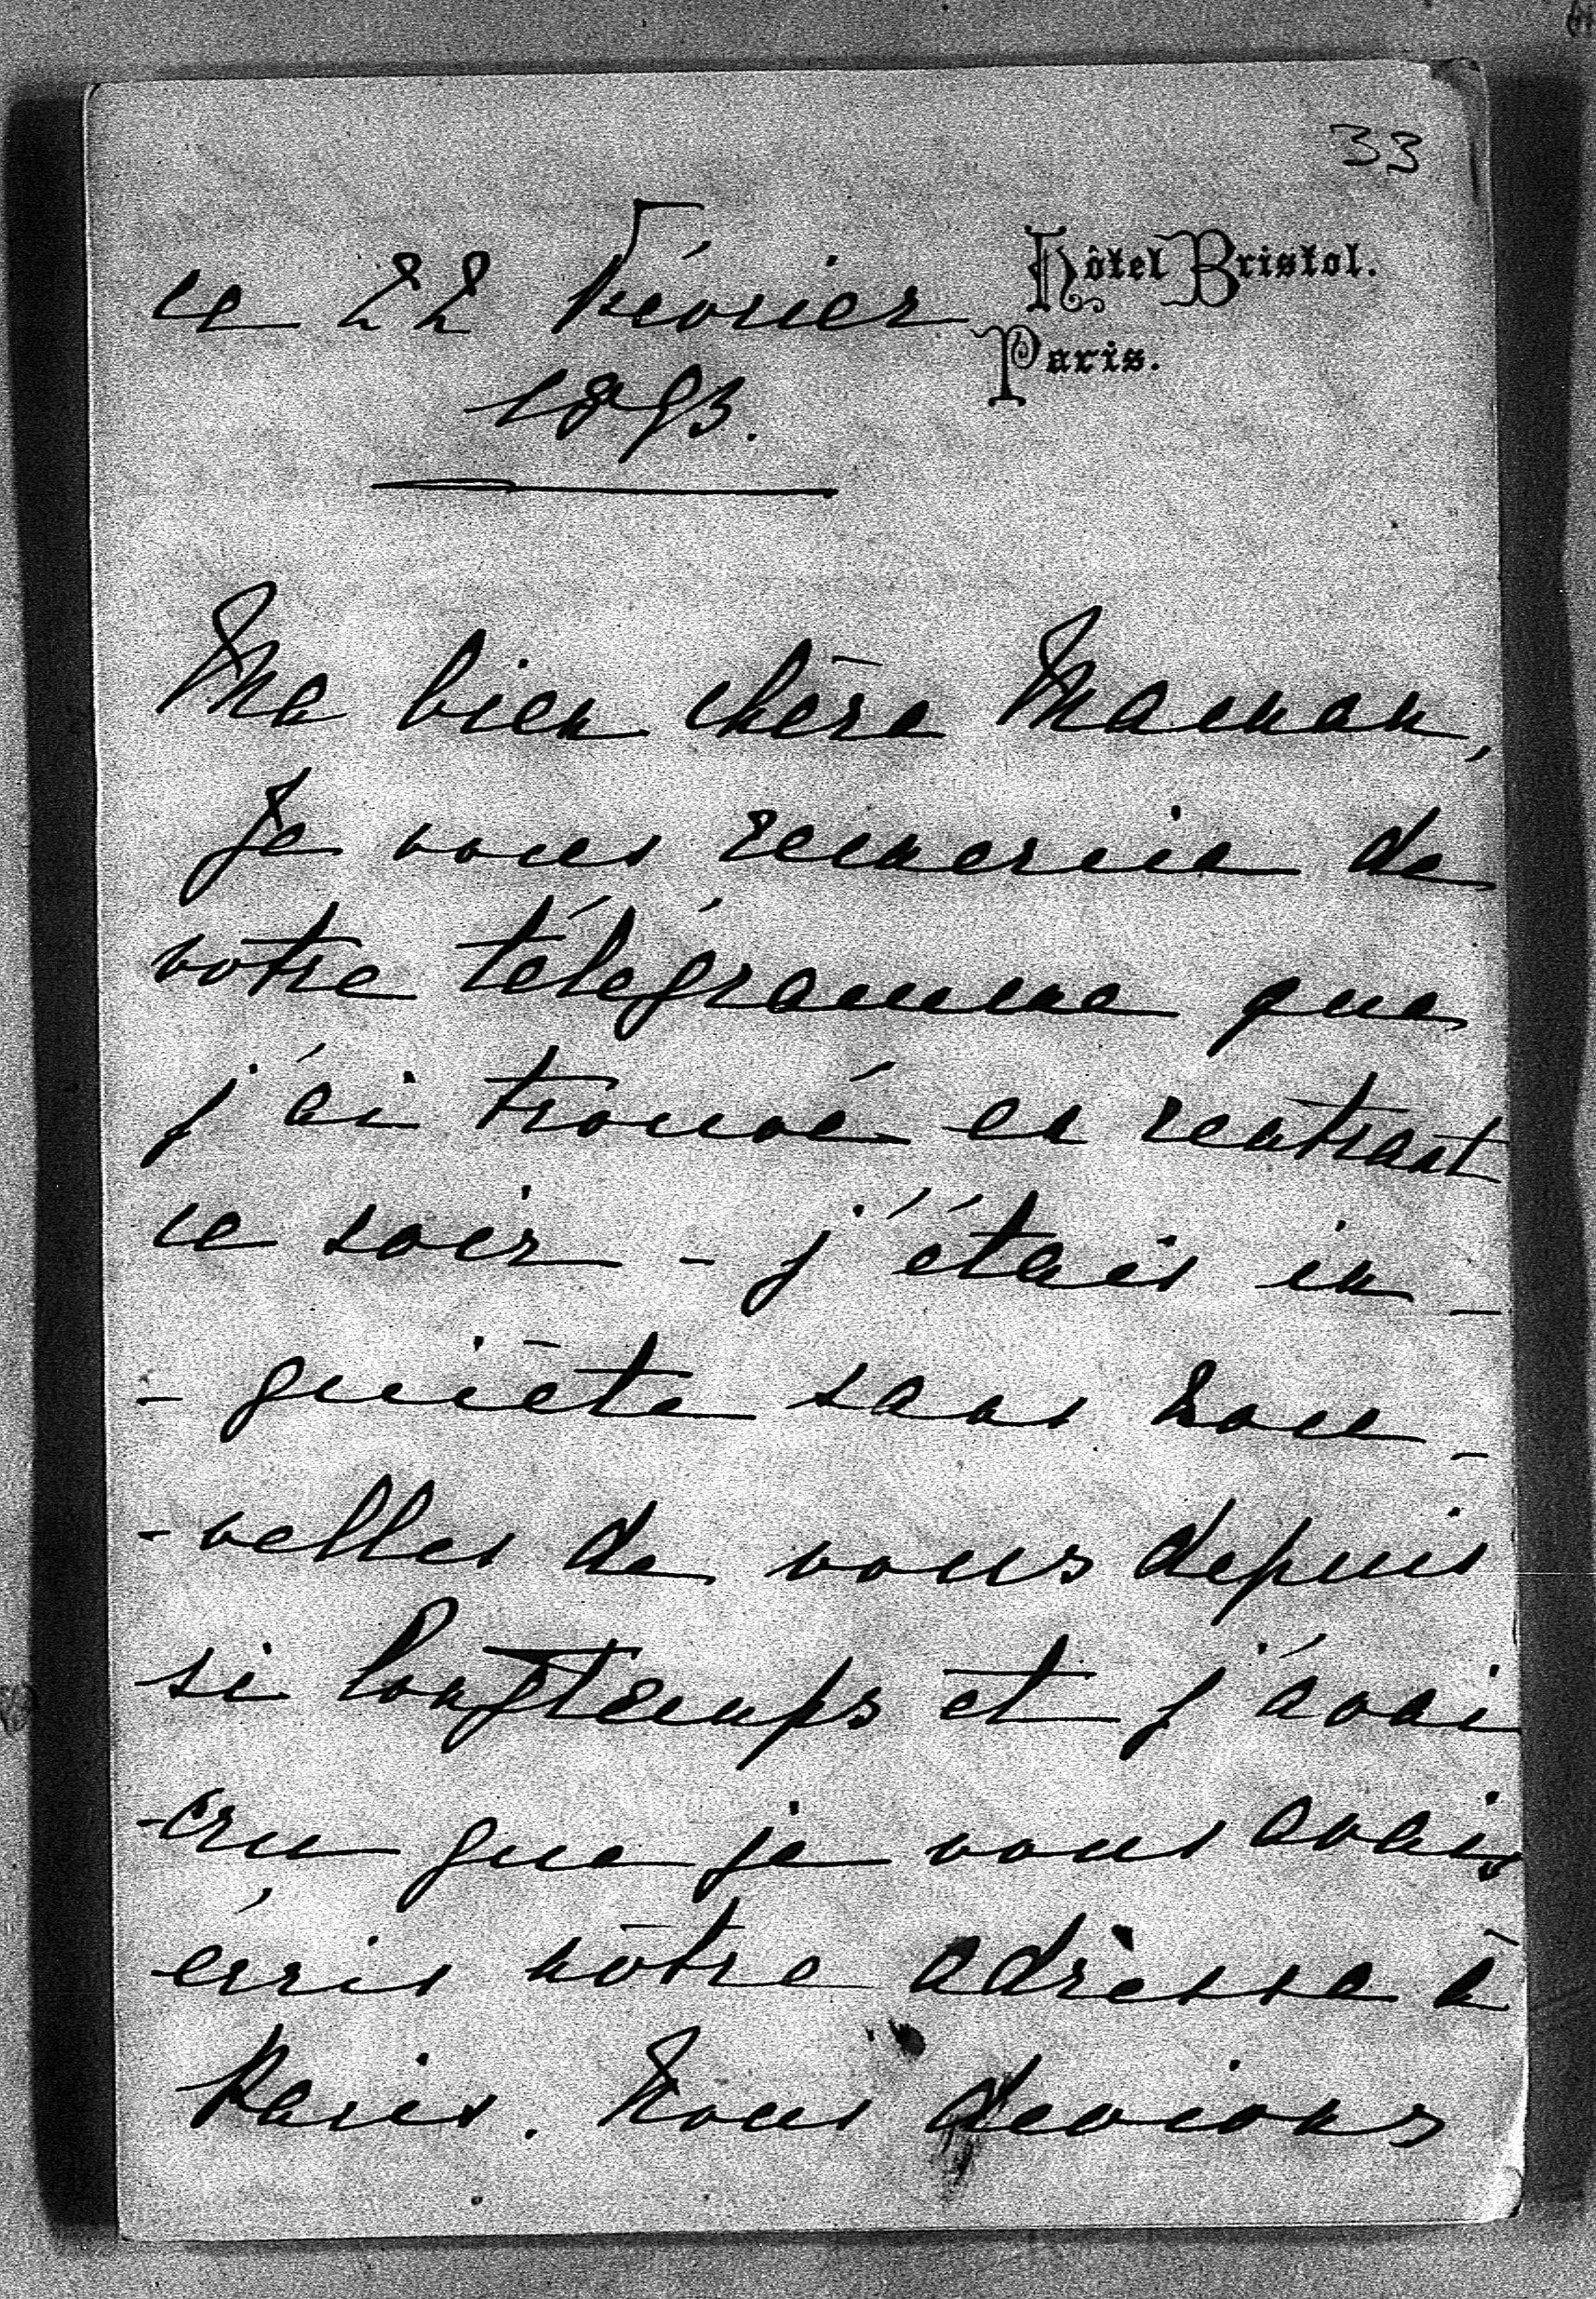 33
Hôtel Bristol.
Paris.
ce 22 Février
1893.
Ma bien chère Maman,
Je vous remercie de
votre télégramme que
j'ai trouvé en rentrant
ce soir - j'étais in-
-quiète sans nou-
-velles de vous depuis
si longtemps et j'avai
cru que je vous avais
écris nôtre adrèsse à
Paris. Nous devions